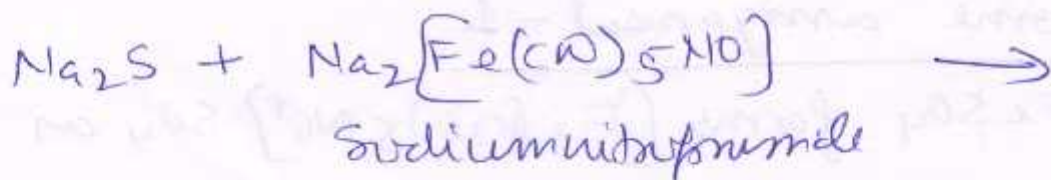 Na₂S + Na₂[Fe(CN)₅NO] ⟶
Sodiumnitroprusside